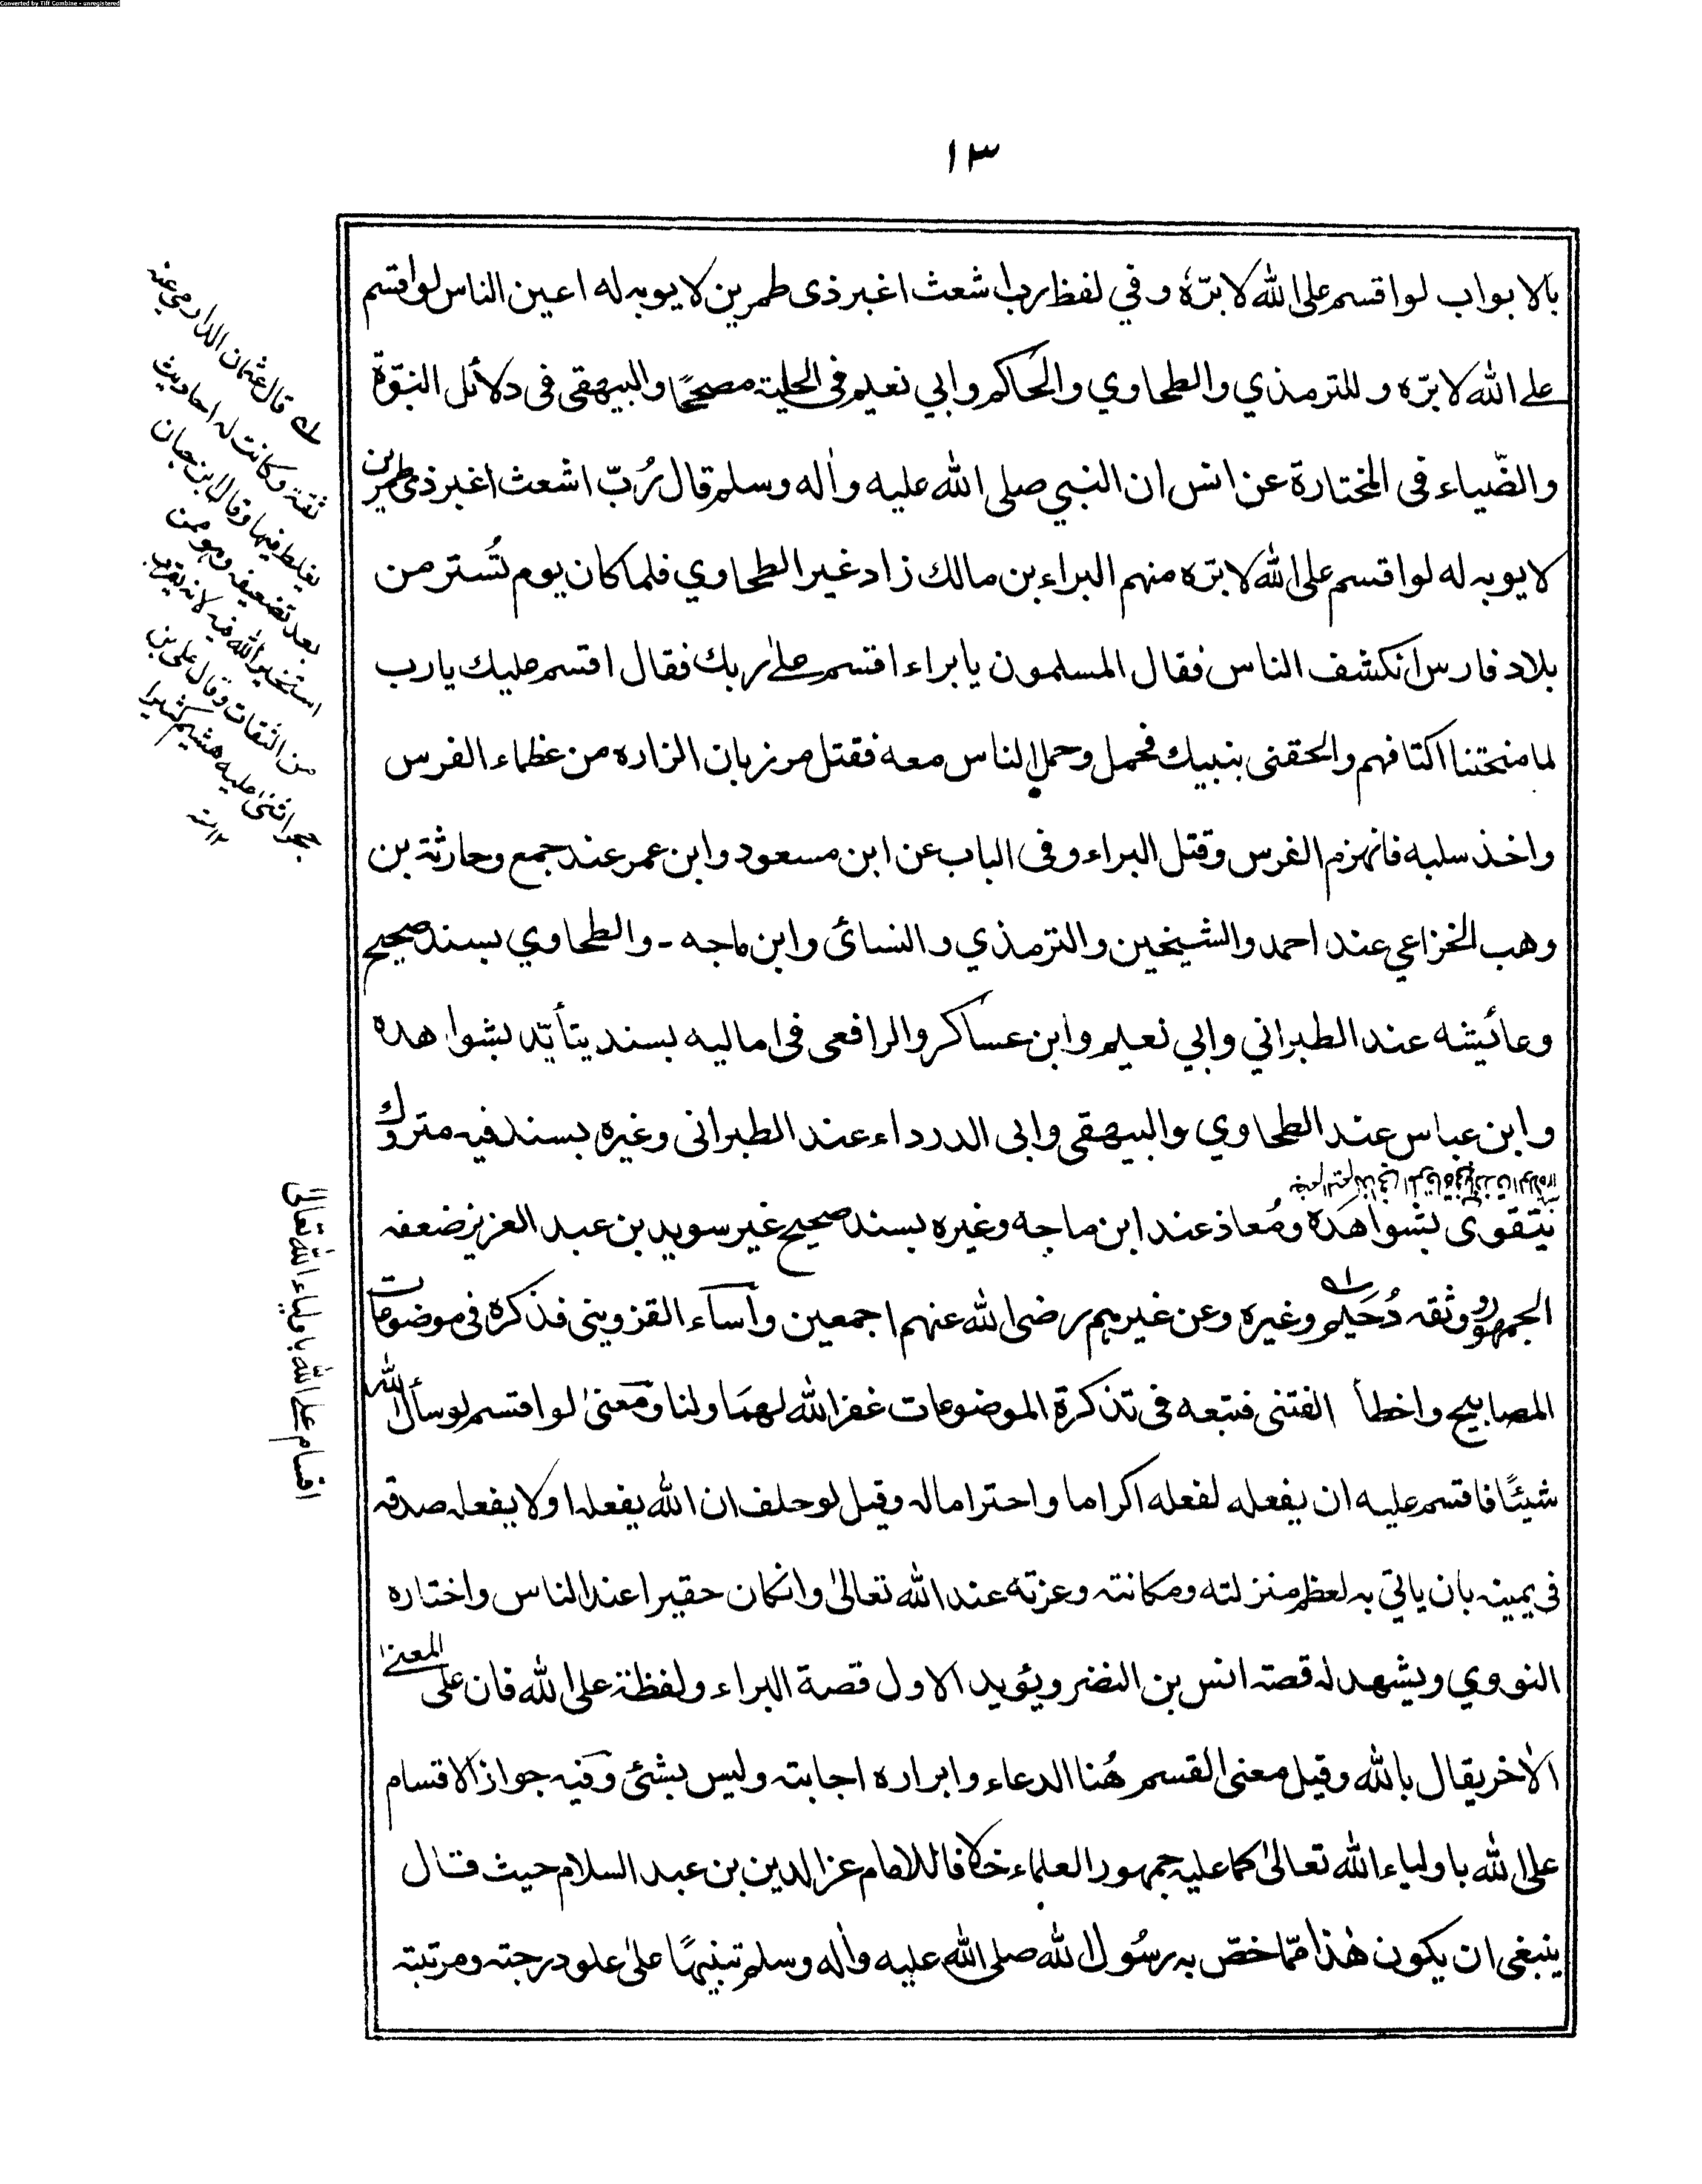 Converted by Tiff Combine - unregistered
١٣
بالابواب لواقسم على الله لابرّه وفي لفظ رب اشعث اغبر ذى طمرين لايوبه له اعين الناس لواقسم
على الله لابرّه وللترمذي والطحاوي والحاكم وابي نعيم فى الحلية مصححًا والبيهقى فى دلائل النبوّة
والضّياء فى المختارة عن انس ان النبي صلى الله عليه واٰله وسلم قال رُبّ اشعث اغبر ذى طمرين
لايوبه له لواقسم على الله لابرّه منهم البراء بن مالك زاد غير الطحاوي فلما كان يوم تُستر من
بلاد فارس انكشف الناس فقال المسلمون يا براء اقسم علىٰ ربك فقال اقسم عليك يارب
لما منحتنا اكتافهم والحقنى بنبيك فحمل وحمل الناس معه فقتل مرزبان الزاره من عظماء الفرس
واخذ سلبه فانهزم الفرس وقتل البراء وفى الباب عن ابن مسعود وابن عمر عند جمع وحارثة بن
وهب الخزاعي عند احمد والشيخين والترمذي والنسائ وابن ماجه - والطحاوي بسند صحيح
وعائيشه عند الطبراني وابي نعيم وابن عساكر والرافعى فى اماليه بسند يتأيّد بشواهده
وابن عباس عند الطحاوي والبيهقى وابى الدرداء عند الطبرانى وغيره بسند فيه متروك
يتقوى بشواهده ومُعاذ عند ابن ماجه وغيره بسند صحيح غير سويد بن عبد العزيز ضعفه
الجمهور ووثقه دُحَيم وغيره وعن غيرهم رضى الله عنهم اجمعين وآساء القزوينى فذكره فى موضوعات
المصابيح واخطأ الفتنى فتبعه فى تذكرة الموضوعات غفر الله لهما ولنا ومعنىٰ لواقسم لوسأل الله
شيئًا فاقسم عليه ان يفعله لفعله اكراما واحتراما له وقيل لوحلف ان الله يفعله اولايفعله صدقه
فى يمينه بان ياتي به لعظم منزلته ومكانته وعزته عند الله تعالىٰ وانكان حقيرا عند الناس واختاره
النووي ويشهد له قصة انس بن النضر ويؤيد الاول قصة البراء ولفظة على الله فان على المعنىٰ
الاٰخر يقال بالله وقيل معنى القسم هُنا الدعاء وابراره اجابته وليس بشئ وفيه جواز الاقسام
على الله باولياء الله تعالىٰ كما عليه جمهور العلماء خلافا للامام عز الدين بن عبد السلام حيث قال
ينبغى ان يكون هٰذا ممّا خصّ به رسُول الله صلى الله عليه واٰله وسلم تنبيهًا علىٰ علو درجته ومرتبته
قال عثمان الدارمي عنه
ثقة وكانت له احاديث
يغلط فيها وقال ابن حبان
بعد تضعيفه وهو ممن
استخير الله فيه لانه يقرب
من الثقات وقال على بن
حجر اثنىٰ عليه هشيم كثيرا
اقسام على الله باولياء الله تعالىٰ